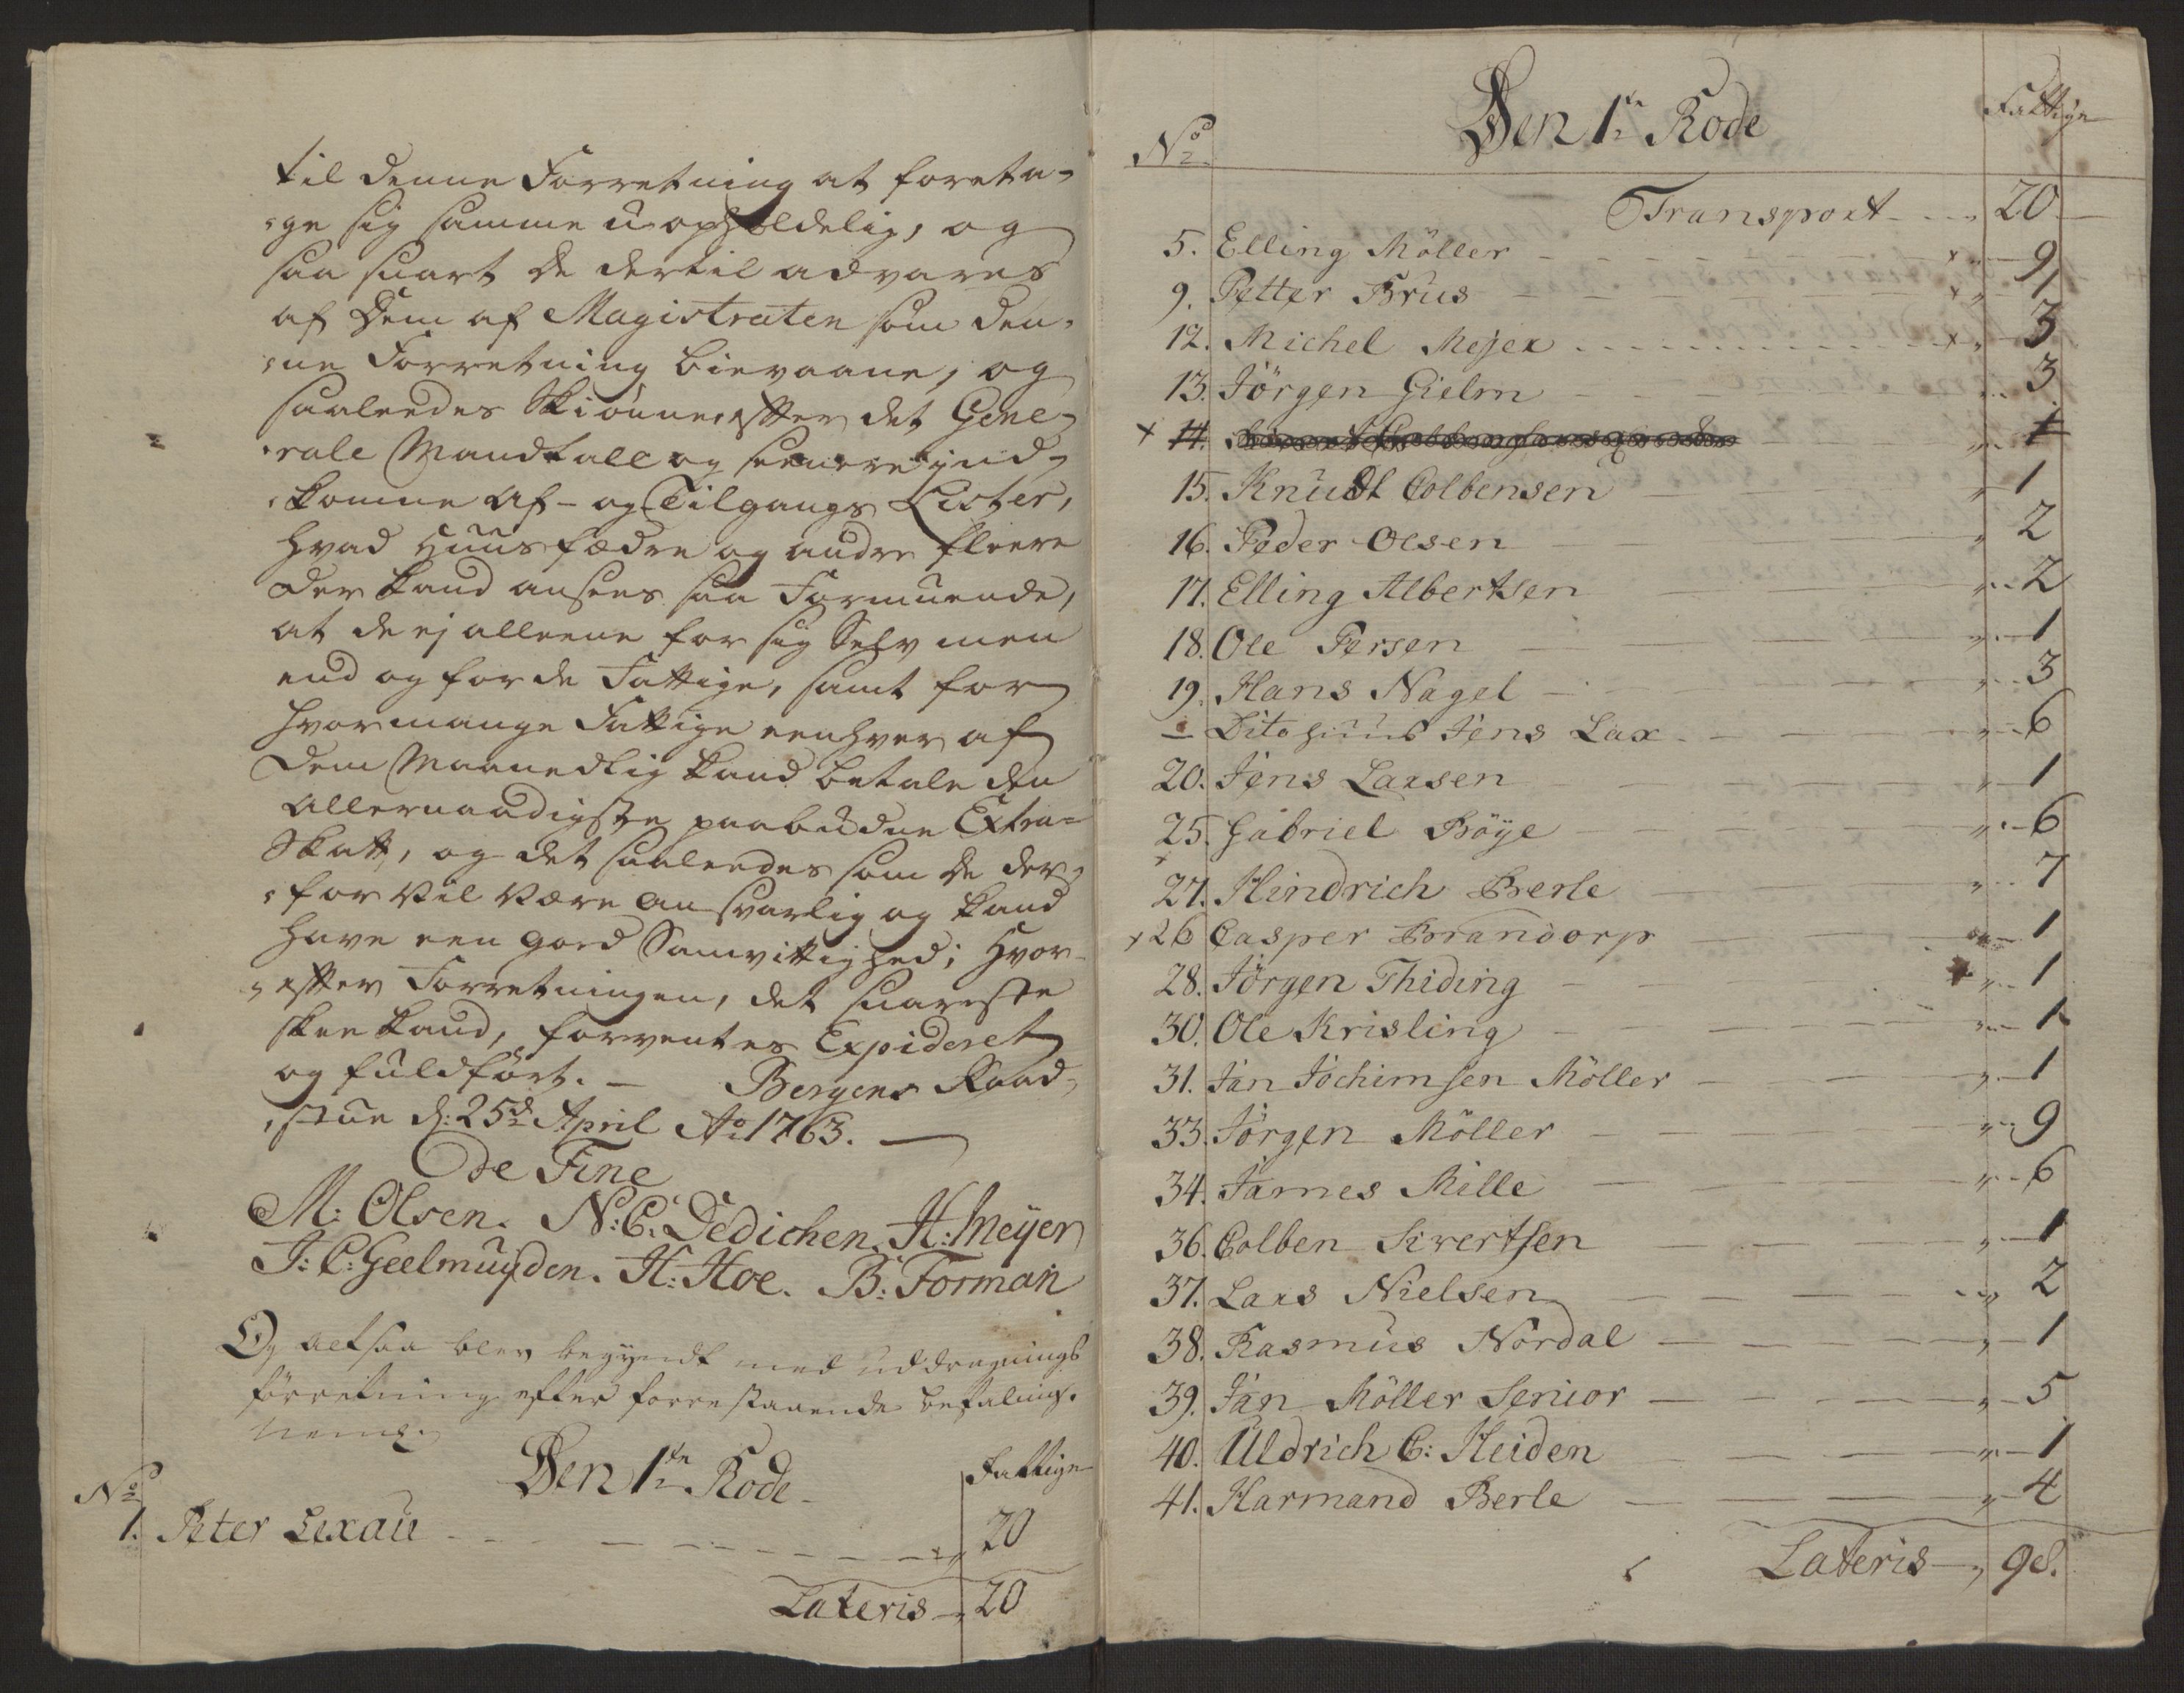 til denne Forretning at foreta-
ge sig samme uopholdelig, og
saa snart de dertil advares
af Dem af Magistraten som den-
ne Forretning bievaane, og
saaleedes Skiönne efter det Gene-
rale Mandtall og seenere ind-
komne Af- og Tilgangs Lister,
hvad Huusfædre og andre fleere
der kand ansees saa Formuende,
at de ej alleene for sig Selv men
end og for de Fattige, samt for
hvormange Fattige eenhver af
Dem Maanedlig kand betale den
Allernaadigste paabudne Extra-
Skatt, og det saaleedes som de der-
for vil være ansvarlig og kand
have een goed Samvittighed; Hvor-
efter Forretningen, det snareste
skee kand, forventes Expideret
og fuldfört. — Bergens Raad-
stue d: 25d April Ao 1763. —
de Fine
M: Olsen. N: C: Dedichen. H: Meyer
J: C: Geelmuyden. H: Hoe. B: Forman
Og altsaa blev begyndt med uddragnings
forretning efter forrestaaende befaling.
neml.
Den 1te Rode
No Fattige
1. Peter Lexau 20
Lateris 20
Den 1te Rode
No Fattige
Transport 20
5. Elling Möller 9
9. Petter Brus 1
12. Michel Mejer 3
13. Jörgen Gielm 3
14. 1
15. Knudt Colbensen 1
16. Peder Olsen 2
17. Elling Albertsen 2
18. Ole Persen 1
19. Hans Nagel 3
— Dito Huus Jens Lax 6
20. Jens Larsen 1
25. Gabriel Böye 6
27. Hindrich Berle 7
x 26 Casper Brandorp 1
28. Jörgen Thiding 1
30. Ole Krisling 1
31. Jan Jochimsen Möller 1
33. Jörgen Möller 9
34. James Mille 6
36. Colben Sivertsen 1
37. Lars Nielsen 2
38. Rasmus Nordal 1
39. Jan Möller Senior 5
40. Uldrich C: Heiden 1
41. Harmand Berle 4
Lateris 98.